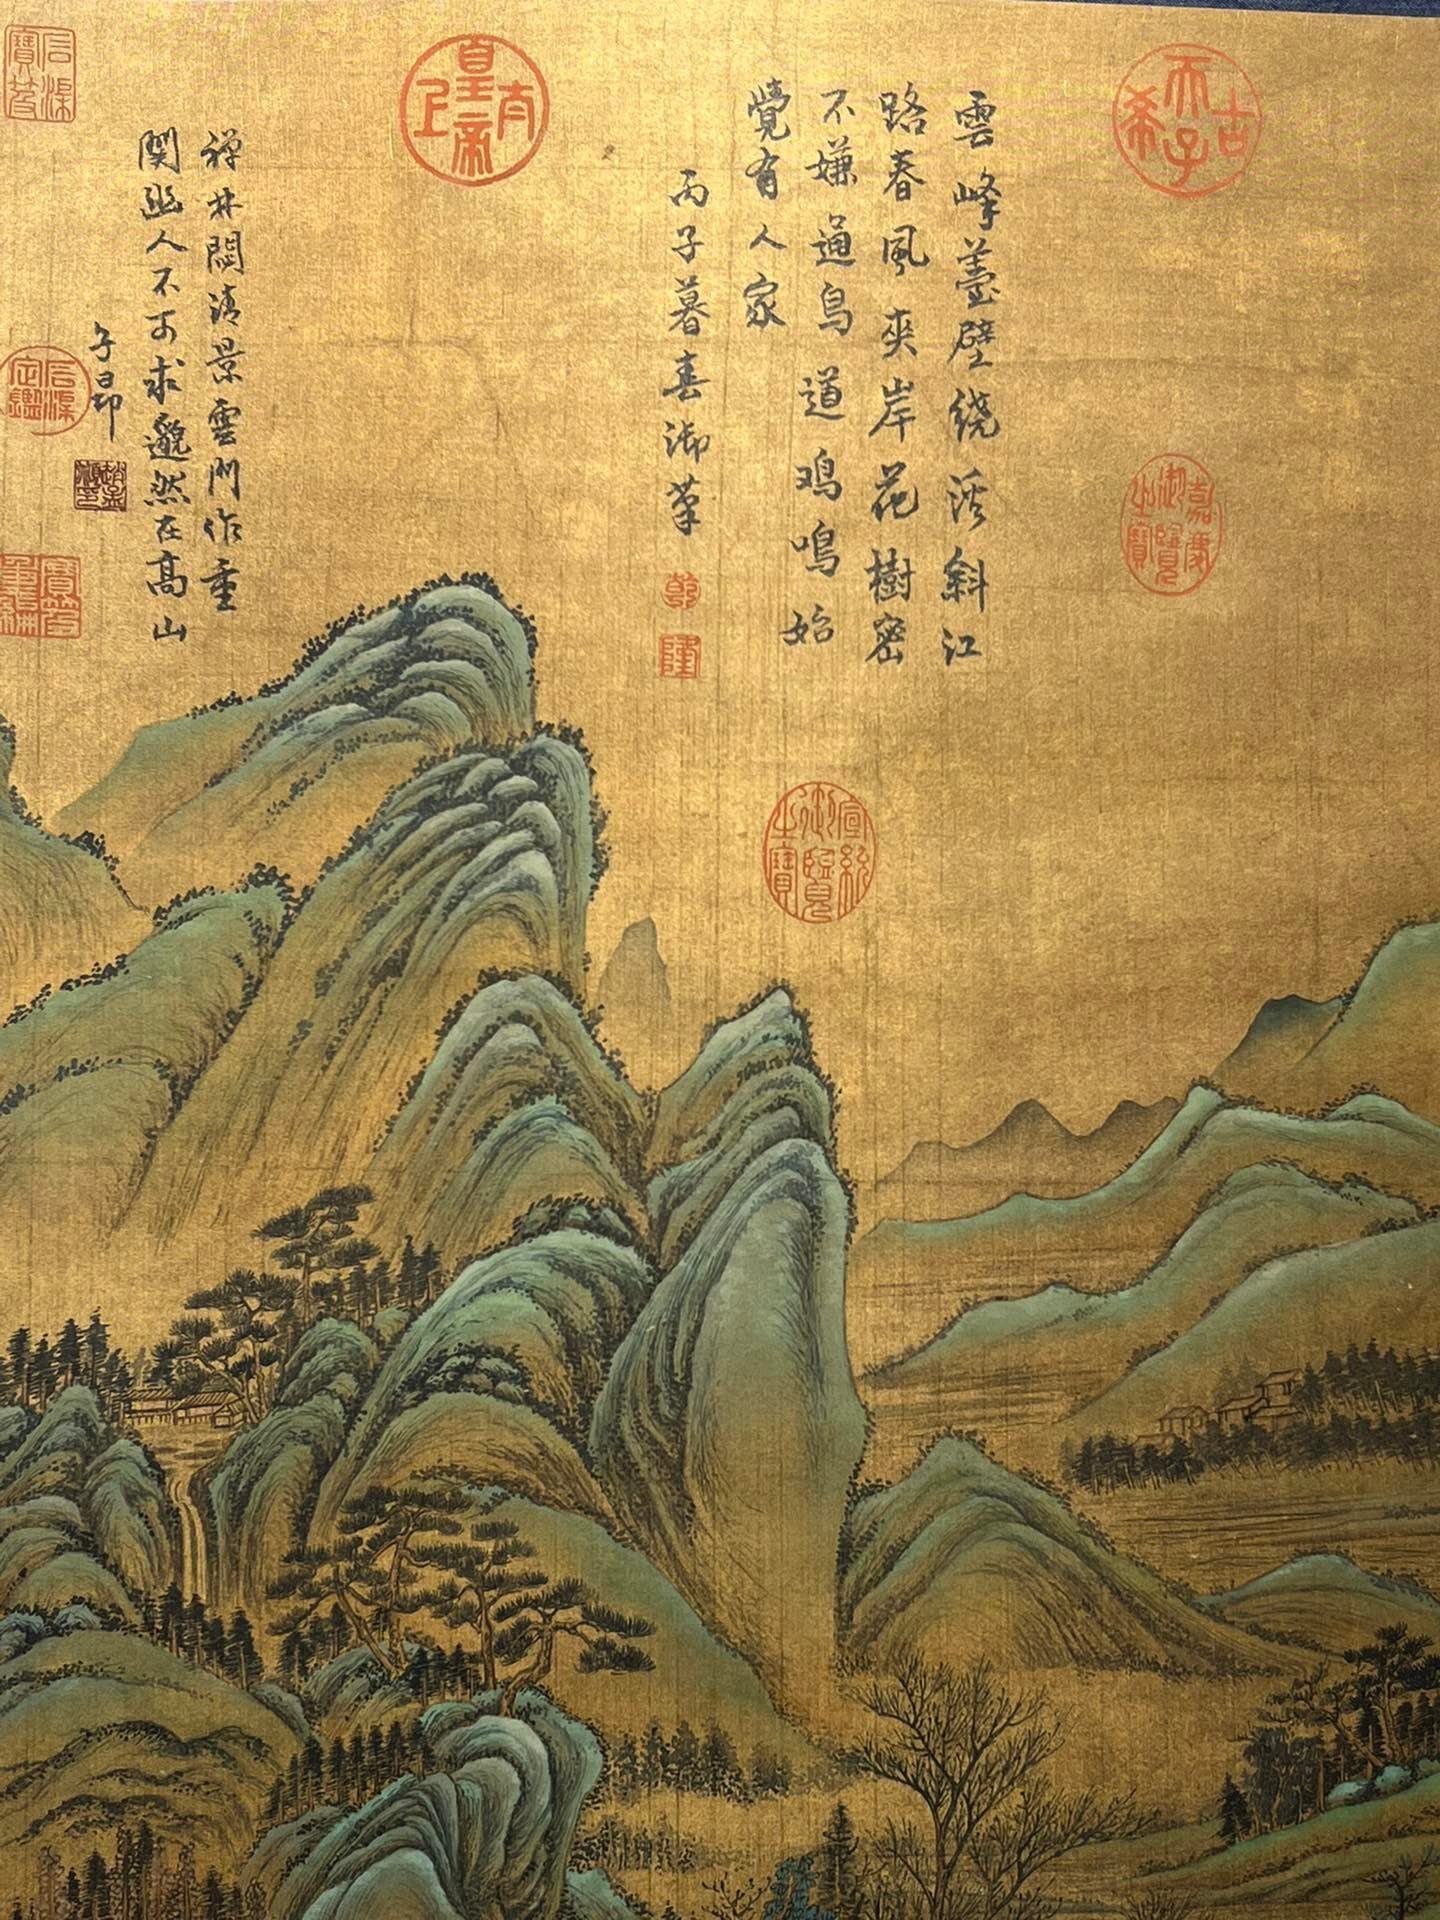 古希天子
嘉慶御覽之寶
雲峰臺壁绕溪斜江
路春風夾岸花樹密
不嫌通鳥道鸡鳴始
覺有人家
丙子暮春御筆
乾
隆
宣統御覽之寶
太上皇帝
禅林閟清景雲門作重
関幽人不可求邈然在高山
子昂
趙孟頫印
石渠寶笈
石渠定鑑
寶笈重編